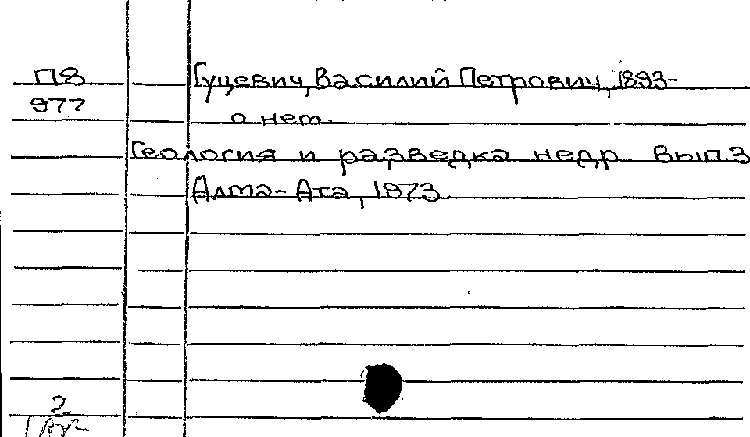 П8 Гуцевич, Василий Петрович, 1893-
977 о нем.
Геология и разведка недр. Вып.3
Алма-Ата, 1973.
2